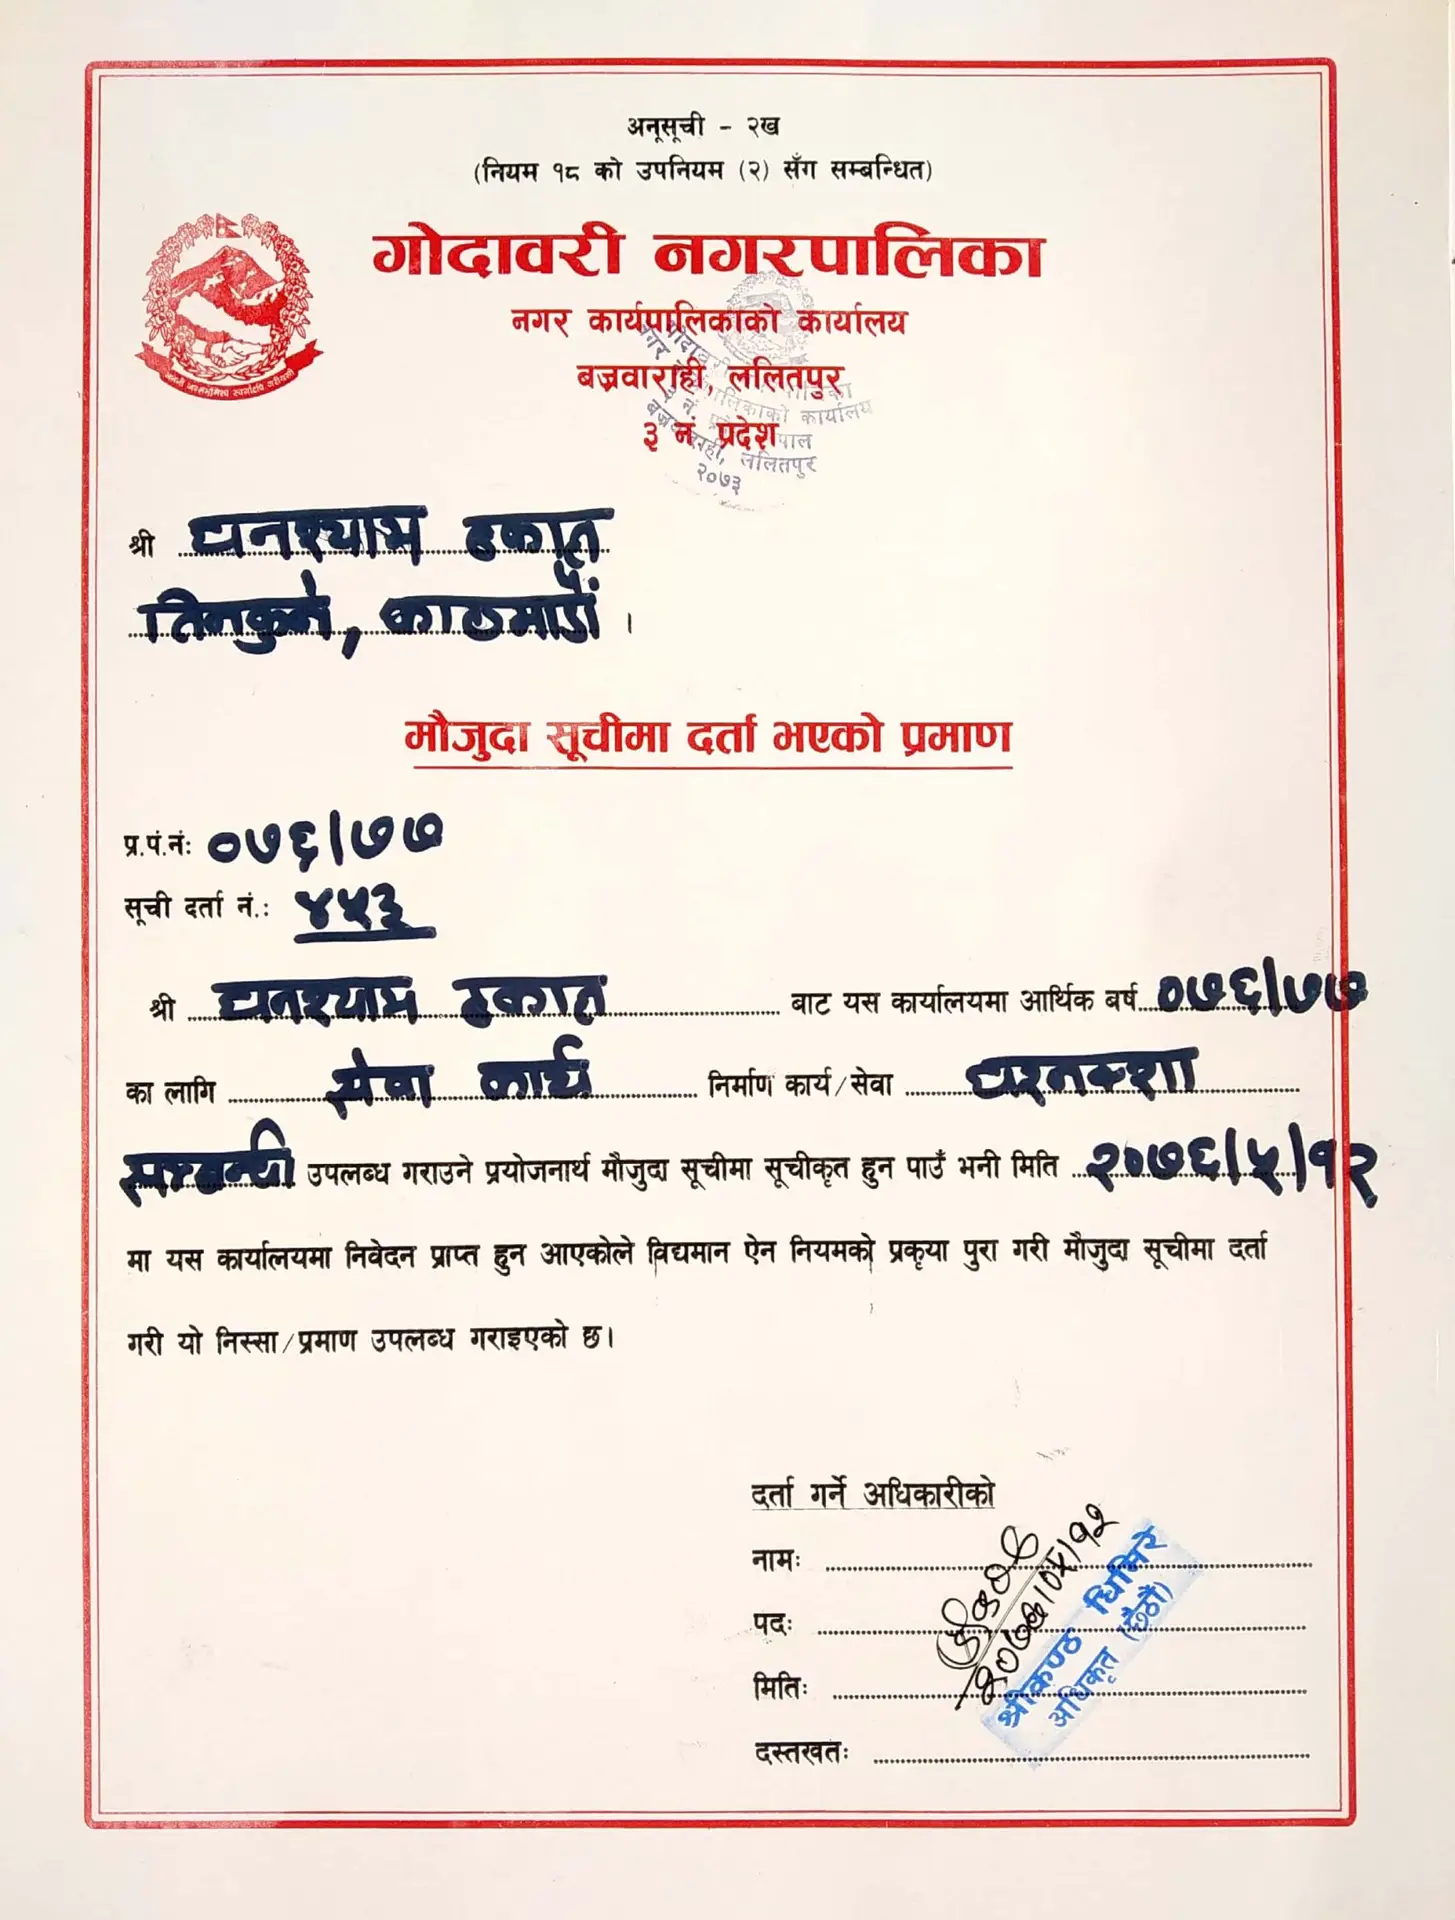 अनूसूची - २ख
(नियम १८ को उपनियम (२) सँग सम्बन्धित)
गोदावरी नगरपालिका
नगर कार्यपालिकाको कार्यालय
बज्रवाराही, ललितपुर
३ नं प्रदेश
गोदावरी नगरपालिका
नगर कार्यपालिकाको कार्यालय
बज्रवाराही, ललितपुर
२०७३
श्री घनश्याम ढकाल
तिनकुने, काठमाडौं ।
मौजुदा सूचीमा दर्ता भएको प्रमाण
प्र.पं.नं: ०७६/७७
सूची दर्ता नं.: ४५३
श्री घनश्याम ढकाल बाट यस कार्यालयमा आर्थिक बर्ष ०७६/७७
का लागि सेवा कार्य निर्माण कार्य/सेवा घरनक्शा
सम्बन्धी उपलब्ध गराउने प्रयोजनार्थ मौजुदा सूचीमा सूचीकृत हुन पाउँ भनी मिति २०७६/५/१२
मा यस कार्यालयमा निवेदन प्राप्त हुन आएकोले विद्यमान ऐन नियमको प्रकृया पुरा गरी मौजुदा सूचीमा दर्ता
गरी यो निस्सा/प्रमाण उपलब्ध गराइएको छ।
दर्ता गर्ने अधिकारीको
नामः
पदः
मितिः
दस्तखतः
२०७६/०५/१२
श्रीकण्ठ घिमिरे
अधिकृत (छैठौं)